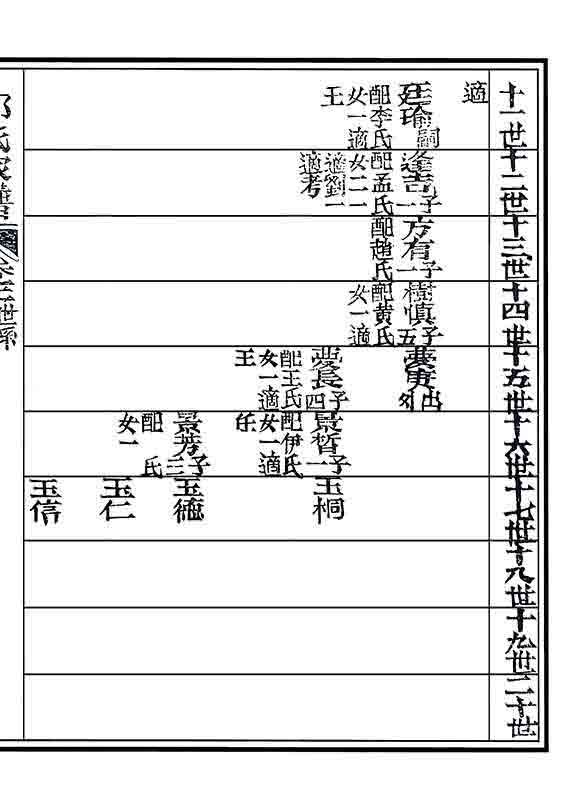 十一世
十二世
十三世
十四世
十五世
十六世
十七世
十八世
十九世
二十世
適
廷瑜嗣
配李氏
女一適
王
逢吉子一
配孟氏
女二一
適劉一
適考
方有子一
配趙氏
樹慎子五
配黃氏
女一適
夢出外
夢長子四
配王氏
女一適
王
景晳子一
配伊氏
女一適
任
景芳子三
配 氏
女一
玉桐
玉德
玉仁
玉信
氏家譜
世系